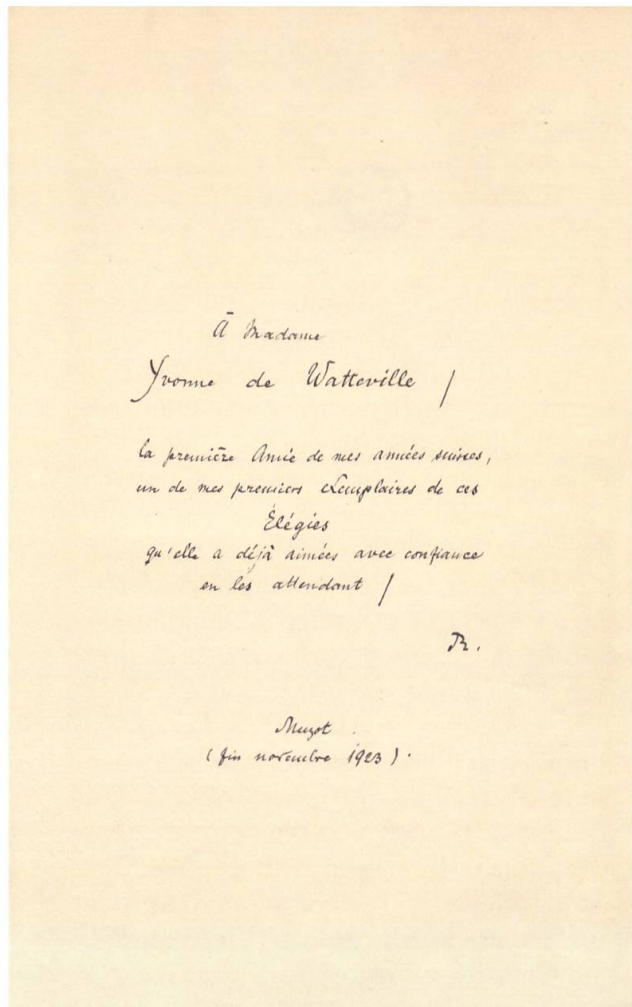 À Madame
Yvonne de Watteville /
la première Amie de mes années suisses,
un de mes premiers exemplaires de ces
Élégies
qu'elle a déjà aimées avec confiance
en les attendant /
R.
Muzot
(fin novembre 1923).